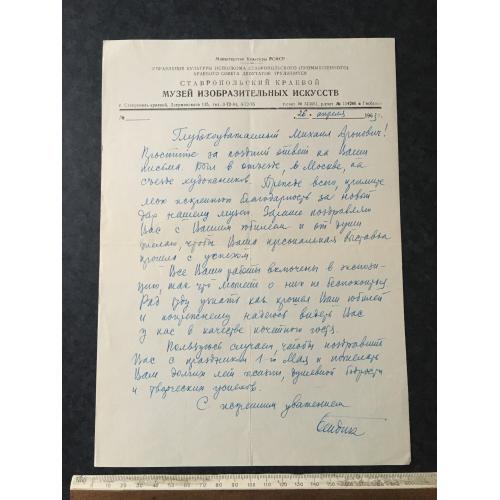 Министерство Культуры РСФСР
УПРАВЛЕНИЕ КУЛЬТУРЫ ИСПОЛКОМА СТАВРОПОЛЬСКОГО (ПРОМЫШЛЕННОГО)
КРАЕВОГО СОВЕТА ДЕПУТАТОВ ТРУДЯЩИХСЯ
СТАВРОПОЛЬСКИЙ КРАЕВОЙ
МУЗЕЙ ИЗОБРАЗИТЕЛЬНЫХ ИСКУССТВ
г. Ставрополь краевой, Дзержинского 115, тел.
№ 26 апреля 1963 г.
Глубокоуважаемый Михаил Аронович!
Простите за поздний ответ на Ваши
письма. Был в отъезде, в Москве, на
съезде художников. Прежде всего, примите
мою искреннюю благодарность за новый
дар нашему музею. Заранее поздравляю
Вас с Вашим юбилеем и от души
желаю, чтобы Ваша персональная выставка
прошла с успехом.
Все Ваши работы включены в экспози-
цию, так что можете о них не беспокоиться
Рад буду узнать как прошел Ваш юбилей
и по-прежнему надеюсь видеть Вас
у нас в качестве почетного гостя.
Пользуюсь случаем, чтобы поздравить
Вас с праздником 1-й Мая и пожелать
Вам долгих лет жизни, душевной бодрости
и творческих успехов.
С искренним уважением